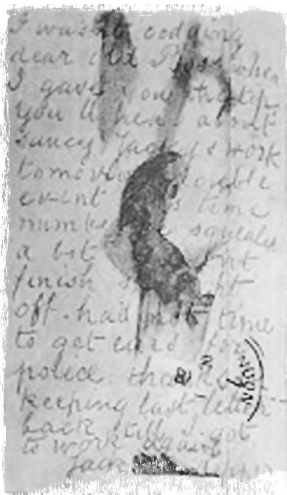 I was not codding
dear old Boss when
I gave you the tip
you'll hear about
saucy Jacky s work
tomorrow double
event this time
number squeals
a bit
finish
off. had not time
to get ears for
police thanks
keeping last letter
back till I got
to work again
Jack